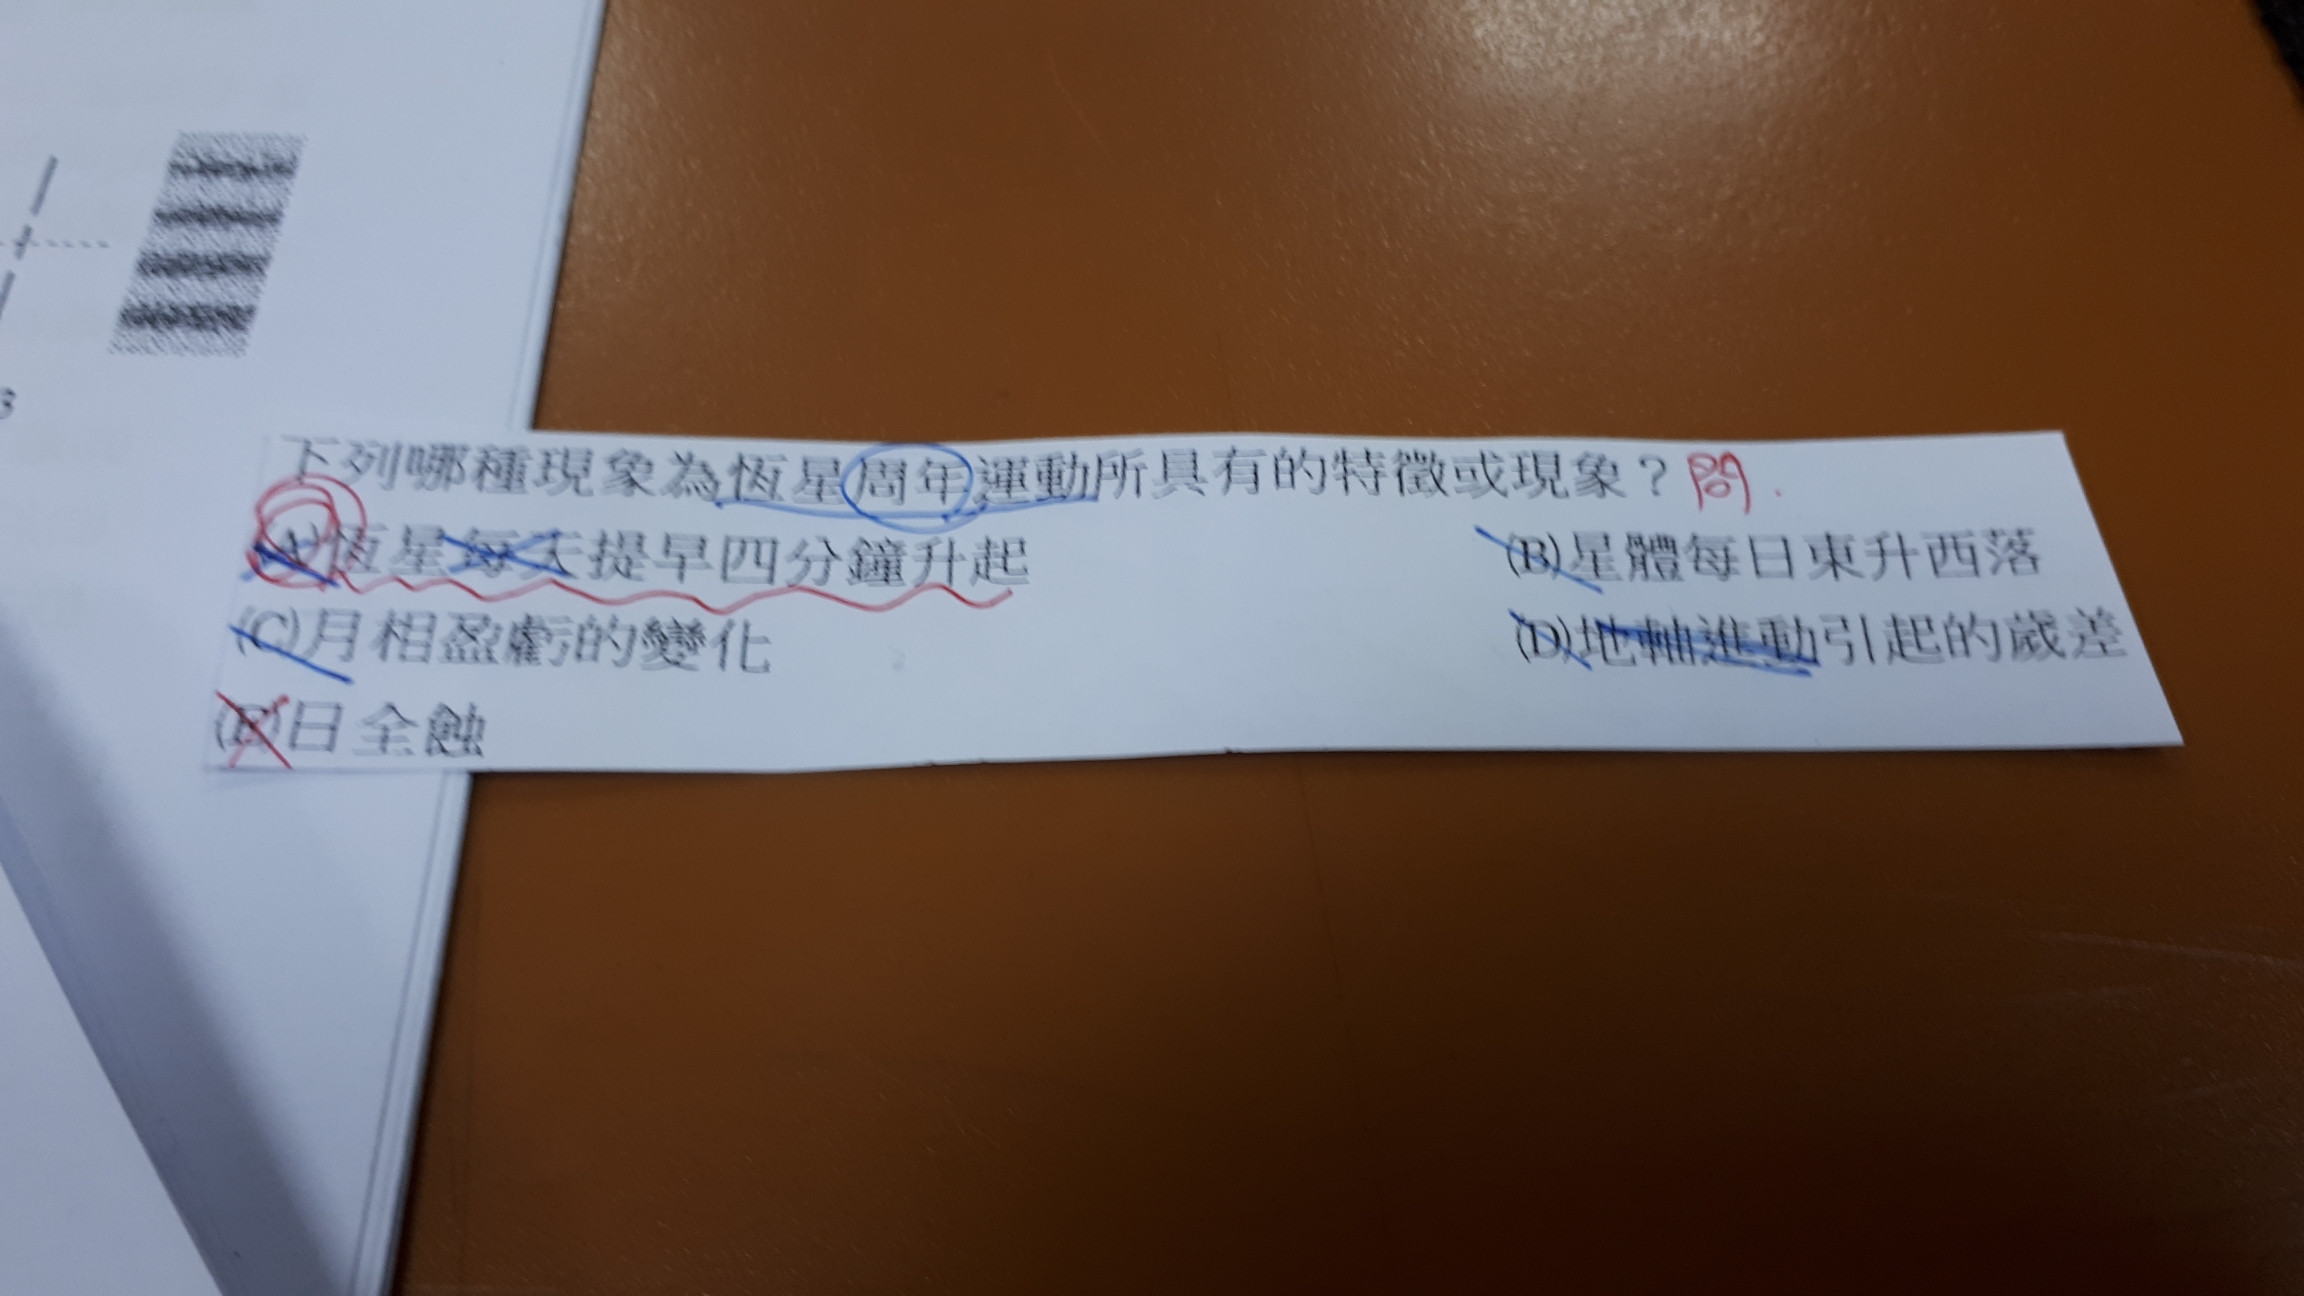 3
下列哪種現象為恆星周年運動所具有的特徵或現象？問.
(A)恆星每天提早四分鐘升起 (B)星體每日東升西落
(C)月相盈虧的變化 (D)地軸進動引起的歲差
(E)日全蝕